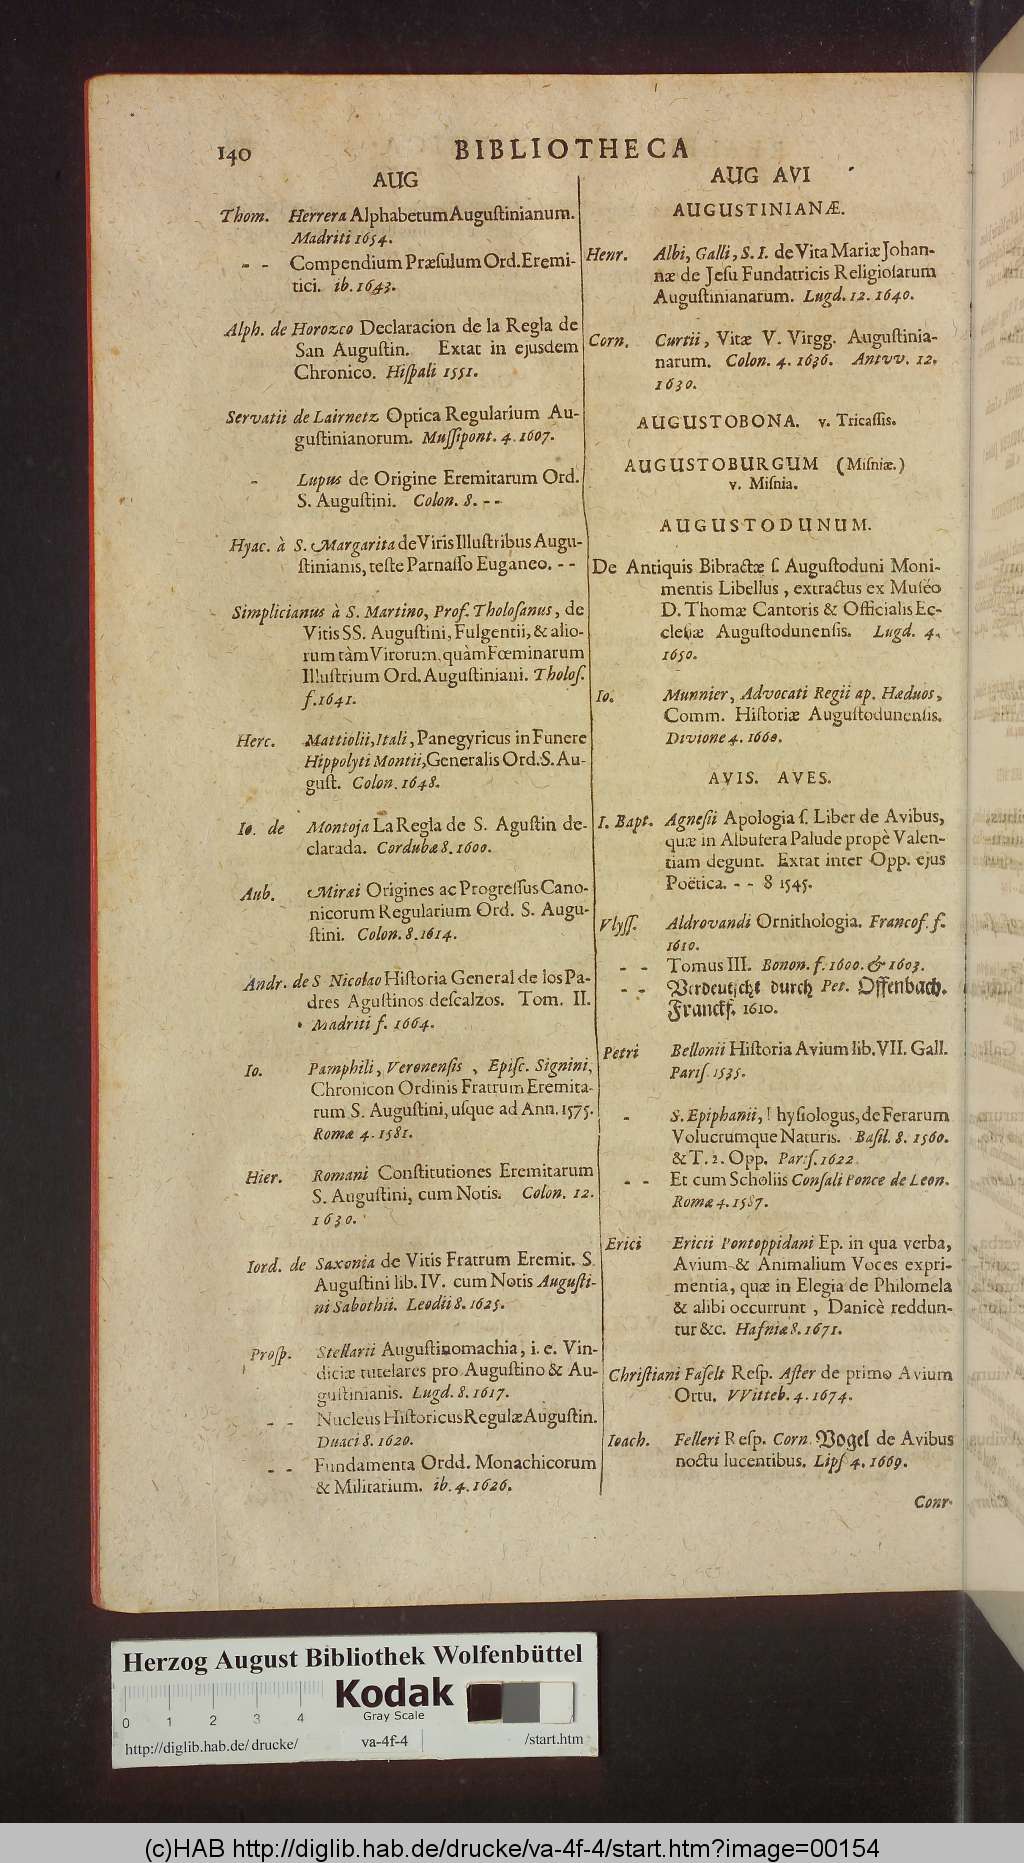 140
BIBLIOTHECA
AUG
Thom. Herrera Alphabetum Auguſtinianum.
Madriti 1654.
- - Compendium Præſulum Ord. Eremi-
tici. ib. 1643.
Alph. de Horozco Declaracion de la Regla de
San Auguſtin. Extat in ejusdem
Chronico. Hiſpali 1551.
Servatii de Lairnetz Optica Regularium Au-
guſtinianorum. Muſſipont. 4. 1607.
- Lupus de Origine Eremitarum Ord.
S. Auguſtini. Colon. 8. - -
Hyac. à S. Margarita de Viris Illuſtribus Augu-
ſtinianis, teſte Parnaſſo Euganeo. - -
Simplicianus à S. Martino, Prof. Tholoſanus, de
Vitis SS. Auguſtini, Fulgentii, & alio-
rum tàm Virorum, quàm Fœminarum
Illuſtrium Ord. Auguſtiniani. Tholoſ.
f. 1641.
Herc. Mattiolii, Itali, Panegyricus in Funere
Hippolyti Montii, Generalis Ord. S. Au-
guſt. Colon. 1648.
Io. de Montoja La Regla de S. Aguſtin de-
clarada. Cordubæ 8. 1600.
Aub. Miræi Origines ac Progreſſus Cano-
nicorum Regularium Ord. S. Augu-
ſtini. Colon. 8. 1614.
Andr. de S Nicolao Hiſtoria General de los Pa-
dres Aguſtinos deſcalzos. Tom. II.
Madriti f. 1664.
Io. Pamphili, Veronenſis, Epiſc. Signini,
Chronicon Ordinis Fratrum Eremita-
rum S. Auguſtini, uſque ad Ann. 1575.
Romæ 4. 1581.
Hier. Romani Conſtitutiones Eremitarum
S. Auguſtini, cum Notis. Colon. 12.
1630.
Iord. de Saxonia de Vitis Fratrum Eremit. S.
Auguſtini lib. IV. cum Notis Auguſti-
ni Sabothii. Leodii 8. 1625.
Proſp. Stellarii Auguſtinomachia, i. e. Vin-
diciæ tutelares pro Auguſtino & Au-
guſtinianis. Lugd. 8. 1617.
- - Nucleus Hiſtoricus Regulæ Auguſtin.
Duaci 8. 1620.
- - Fundamenta Ordd. Monachicorum
& Militarium. ib. 4. 1626.
AUG AVI
AUGUSTINIANÆ.
Henr. Albi, Galli, S. I. de Vita Mariæ Johan-
næ de Jeſu Fundatricis Religioſarum
Auguſtinianarum. Lugd. 12. 1640.
Corn. Curtii, Vitæ V. Virgg. Auguſtinia-
narum. Colon. 4. 1636. Antvv. 12.
1630.
AUGUSTOBONA. v. Tricaſſis.
AUGUSTOBURGUM (Miſniæ.)
v. Miſnia.
AUGUSTODUNUM.
De Antiquis Bibractæ ſ. Auguſtoduni Moni-
mentis Libellus, extractus ex Muſéo
D. Thomæ Cantoris & Officialis Ec-
cleſiæ Auguſtodunenſis. Lugd. 4.
1650.
Io. Munnier, Advocati Regii ap. Hæduos,
Comm. Hiſtoriæ Auguſtodunenſis.
Divione 4. 1660.
AVIS. AVES.
I. Bapt. Agneſii Apologia ſ. Liber de Avibus,
quæ in Albufera Palude propè Valen-
tiam degunt. Extat inter Opp. ejus
Poëtica. - - 8 1545.
Vlyſſ. Aldrovandi Ornithologia. Francof. f.
1610.
- - Tomus III. Bonon. f. 1600. & 1603.
- - Verdeutſcht durch Pet. Offenbach.
Franckf. 1610.
Petri Bellonii Hiſtoria Avium lib. VII. Gall.
Pariſ. 1535.
- S. Epiphanii, Phyſiologus, de Ferarum
Volucrumque Naturis. Baſil. 8. 1560.
& T. 2. Opp. Pariſ. 1622.
- - Et cum Scholiis Conſali Ponce de Leon.
Romæ 4. 1587.
Erici Ericii Pontoppidani Ep. in qua verba,
Avium & Animalium Voces expri-
mentia, quæ in Elegia de Philomela
& alibi occurrunt, Danicè reddun-
tur &c. Hafniæ 8. 1671.
Chriſtiani Faſelt Reſp. Aſter de primo Avium
Ortu. VVitteb. 4. 1674.
Ioach. Felleri Reſp. Corn. Vogel de Avibus
noctu lucentibus. Lipſ 4. 1669.
Conr-
Herzog August Bibliothek Wolfenbüttel
Kodak
Gray Scale
0 1 2 3 4
http://diglib.hab.de/drucke/ va-4f-4 /start.htm
(c)HAB http://diglib.hab.de/drucke/va-4f-4/start.htm?image=00154